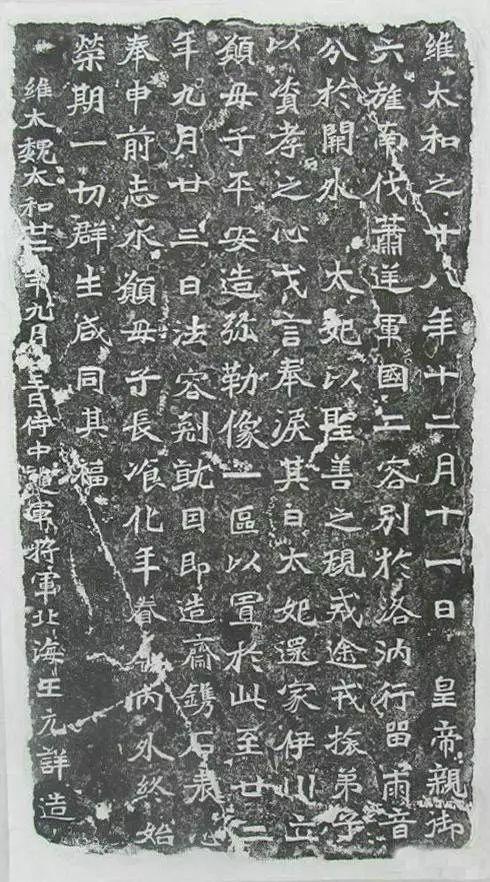 維太和之十八年十二月十一日皇帝親御
六旌南伐蕭逆軍國二容別於洛汭行留兩音
分於闕外太妃以聖善之規戒途戒旅弟子
以資孝之心戈言奉淚其日太妃還家伊川立
願母子平安造弥勒像一區以置於此至廿二
年九月廿三日法容剋就因即造齋鐫石表心
奉申前志永願母子長飡化年眷內外終始
榮期一切群生咸同其福
維大魏太和廿二年九月廿三日侍中護軍將軍北海王元詳造